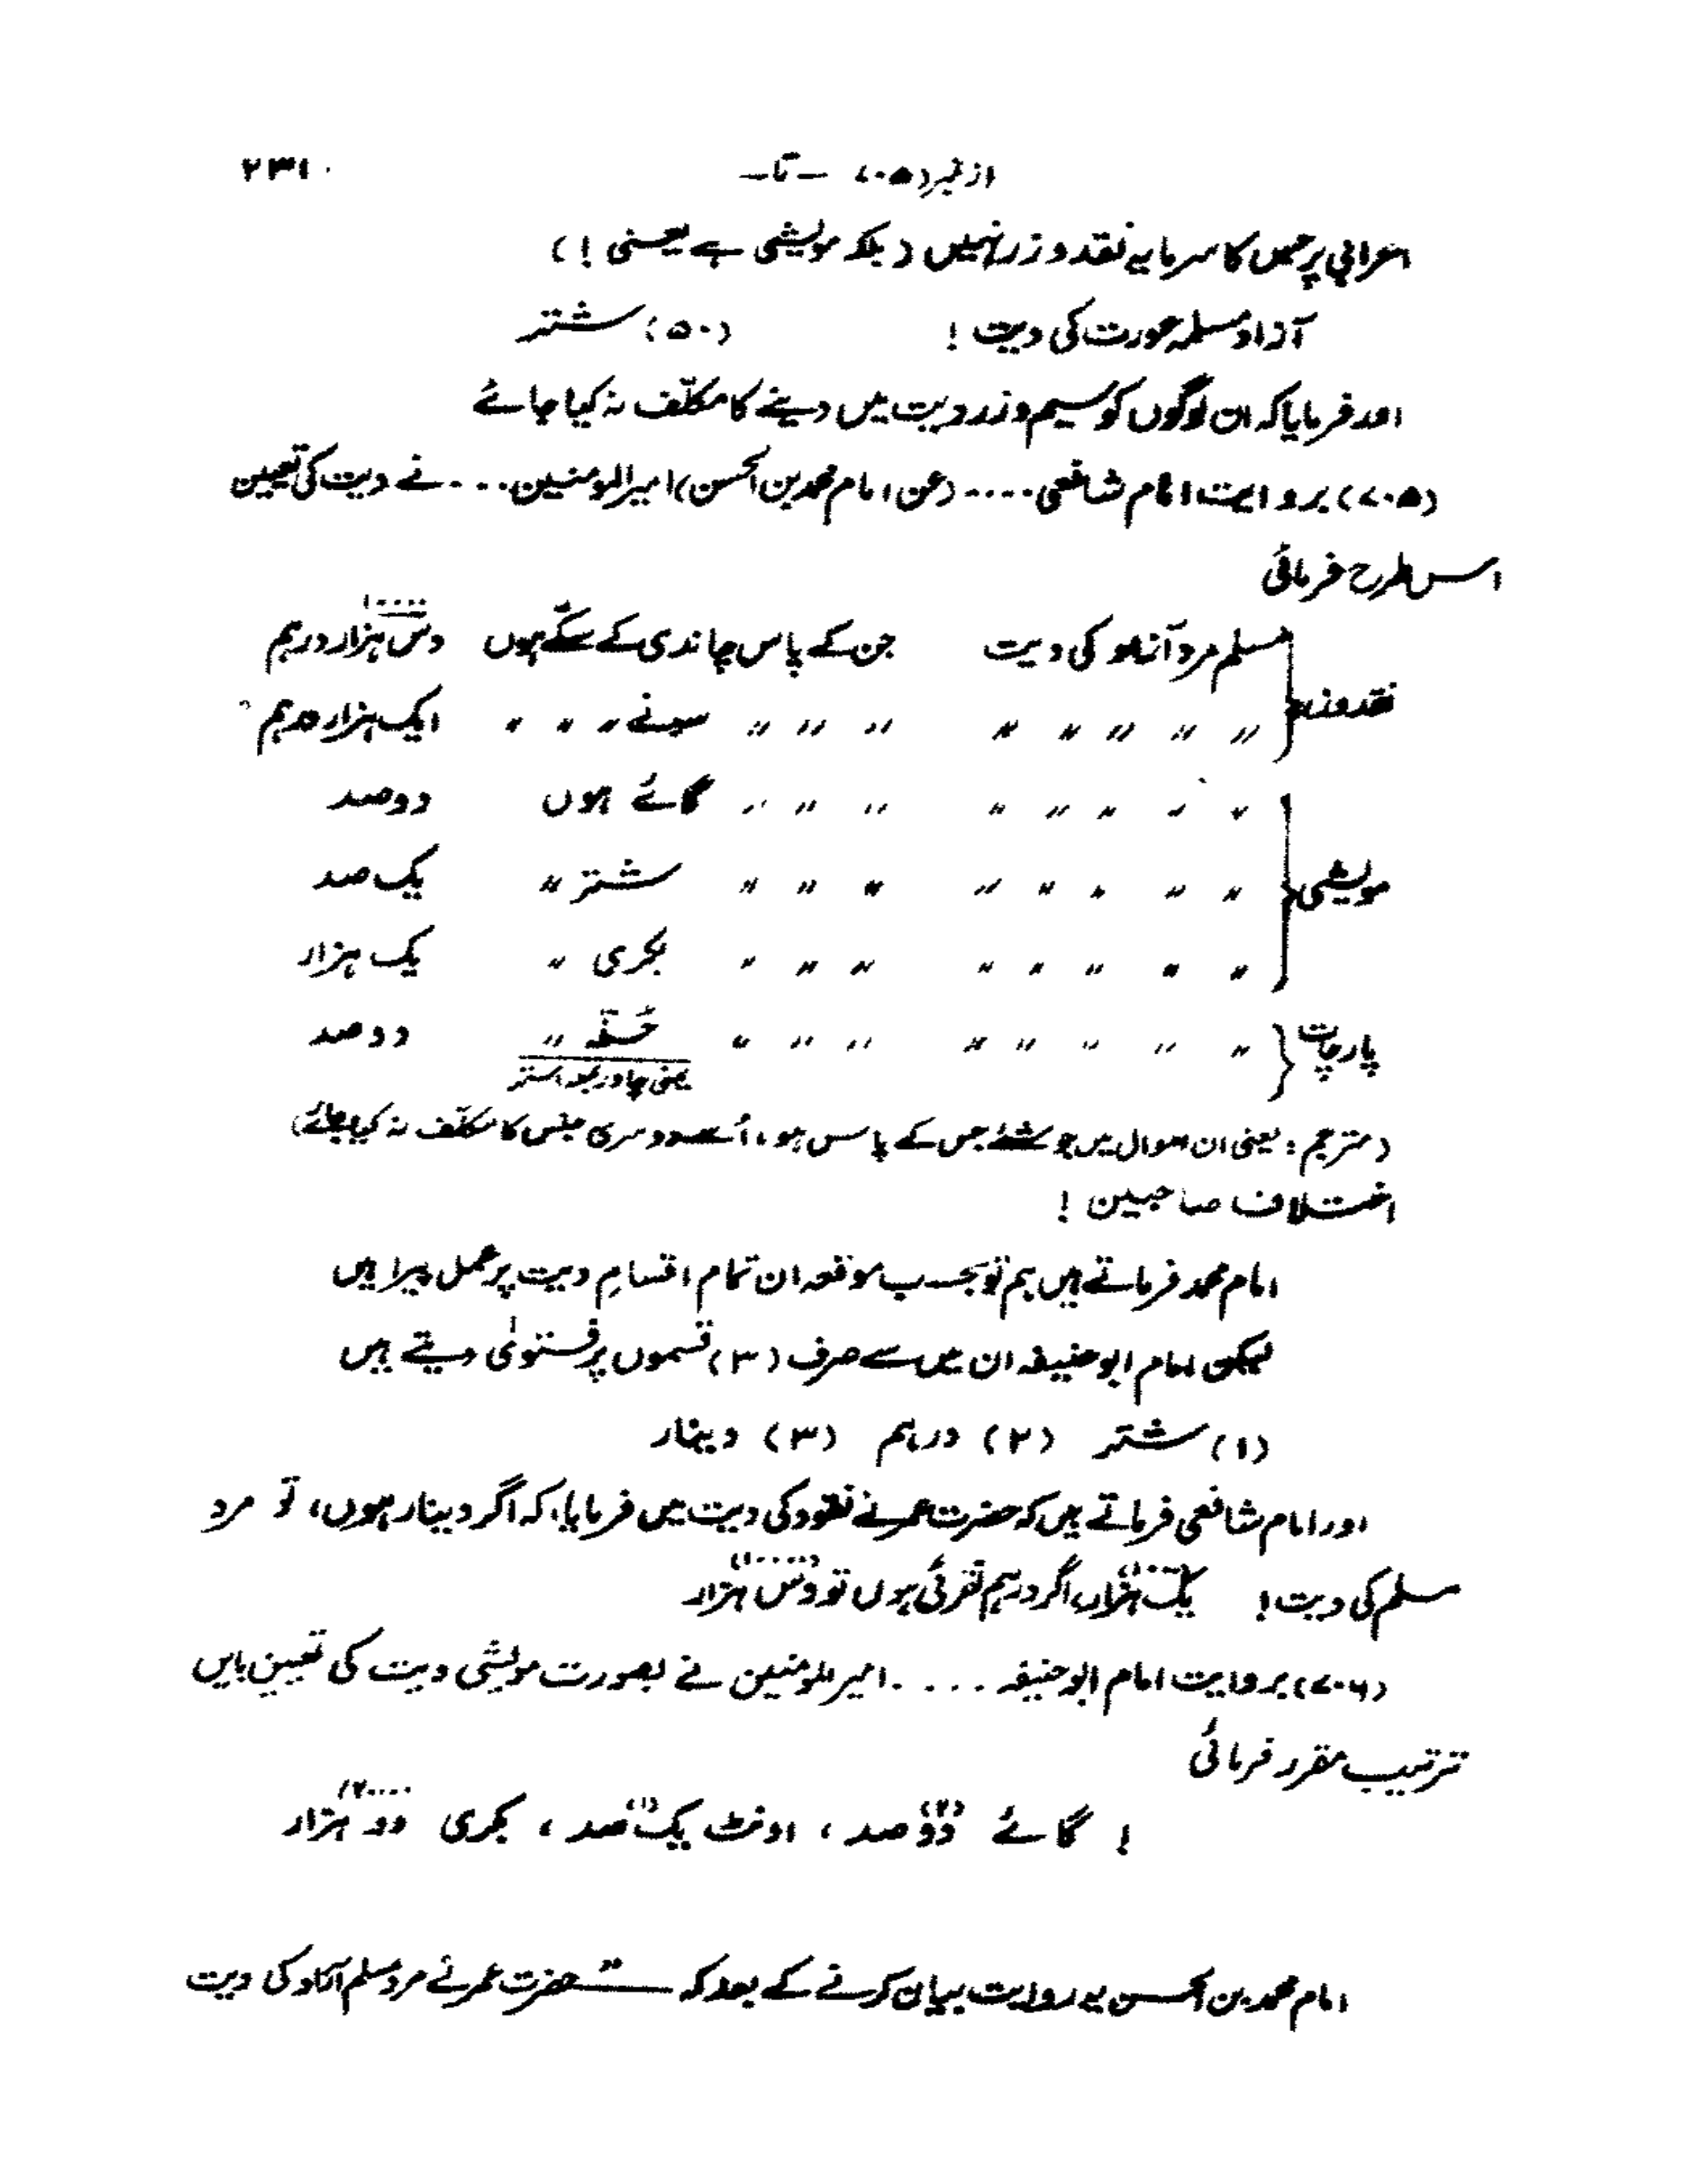 از نمبر (۷۰۵ - تا - ۲۳۱
اعرابی پر جس کا سرمایہ نقد و زر نہیں (بلکہ مویشی ہے یعنی!)
آزاد مسلمہ عورت کی دیت! (۵۰) شتر
اور فرمایا کہ ان لوگوں کو سیم و زر دیت میں دینے کا مکلّف نہ کیا جائے
(۷۰۵) بروایت امام شافعی .... (عن امام محمد بن الحسن) امیر المومنین .... نے دیت کی تعیین
اس طرح فرمائی
نقد و زر { مسلم مرد آزاد کی دیت جن کے پاس چاندی کے سکّے ہوں دس ہزار درہم ۱۰۰۰۰
〃 〃 〃 〃 〃 〃 〃 〃 سونے 〃 〃 〃 ایک ہزار درہم
مویشی { 〃 〃 〃 〃 〃 〃 〃 〃 گائے ہوں دو صد
〃 〃 〃 〃 〃 〃 〃 〃 شتر 〃 یک صد
〃 〃 〃 〃 〃 〃 〃 〃 بکری 〃 یک ہزار
پارچات { 〃 〃 〃 〃 〃 〃 〃 〃 حُلّہ 〃 دو صد
یعنی چادر بمعہ استر
(مترجم: یعنی ان اموال میں جو شئے جس کے پاس ہو، اُسے دوسری جنس کا مکلّف نہ کیا جائے)
اختلاف صاحبین!
امام محمد فرماتے ہیں ہم تو بحسب موقعہ ان تمام اقسامِ دیت پر عمل پیرا ہیں
لیکن امام ابو حنیفہ ان میں سے صرف (۳) قسموں پر فتویٰ دیتے ہیں
(۱) شتر (۲) درہم (۳) دینار
اور امام شافعی فرماتے ہیں کہ حضرت عمر نے نقود کی دیت میں فرمایا، کہ اگر دینار ہوں، تو مرد
مسلم کی دیت! یک ہزار، اگر درہم نقرئی ہوں تو دس ہزار (۱۰۰۰۰)
(۷۰۶) بروایت امام ابو حنیفہ .... امیر المومنین نے بصورت مویشی دیت کی تعیین بایں
ترتیب مقرر فرمائی
! گائے دو (۲) صد، اونٹ یک (۱) صد، بکری دو ہزار
امام محمد بن الحسن یہ روایت بیان کرنے کے بعد کہ — حضرت عمر نے مرد مسلم آزاد کی دیت